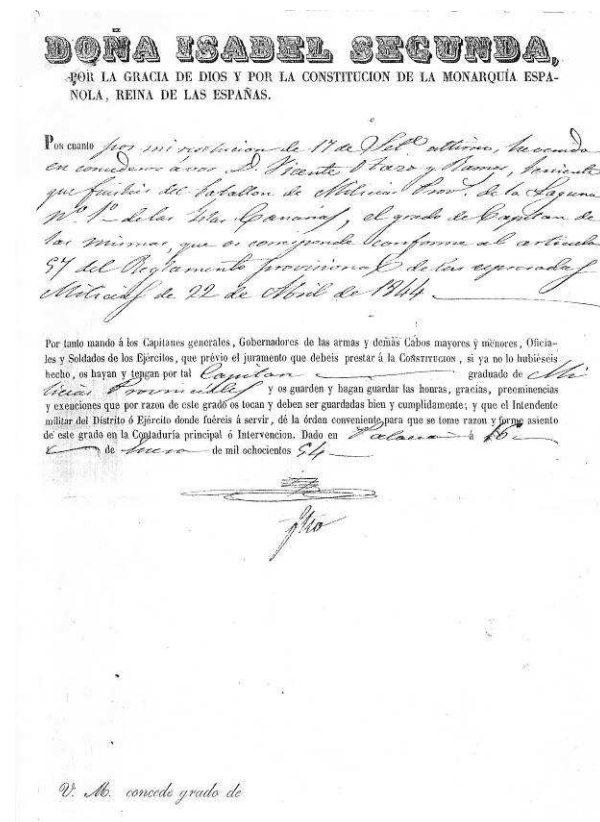 DOÑA ISABEL SEGUNDA,
POR LA GRACIA DE DIOS Y POR LA CONSTITUCION DE LA MONARQUÍA ESPA-
ÑOLA, REINA DE LAS ESPAÑAS.
Por cuanto por mi resolucion de 17 de Set.e ultimo, he venido
en concederos á vos D. Vicente Otazo y Ramos, teniente
que fuisteis del batallon de Milicias Prov.s de la Laguna
Nº 1º de las Islas Canarias, el grado de Capitan de
las mismas, que os corresponde conforme al articulo
57 del Reglamento provisional de las espresadas
Milicias de 22 de Abril de 1844
Por tanto mando á los Capitanes generales, Gobernadores de las armas y demás Cabos mayores y menores, Oficia-
les y Soldados de los Ejércitos, que prévio el juramento que debeis prestar á la CONSTITUCION, si ya no lo hubiéseis
hecho, os hayan y tengan por tal Capitan graduado de Mi
licias Provinciales y os guarden y hagan guardar las honras, gracias, preeminencias
y exenciones que por razon de este grado os tocan y deben ser guardadas bien y cumplidamente; y que el Intendente
militar del Distrito ó Ejército donde fuéreis á servir, dé la órden conveniente para que se tome razon y forme asiento
de este grado en la Contaduría principal ó Intervencion. Dado en Palacio á 16
de Enero de mil ochocientos 54
V. M. concede grado de